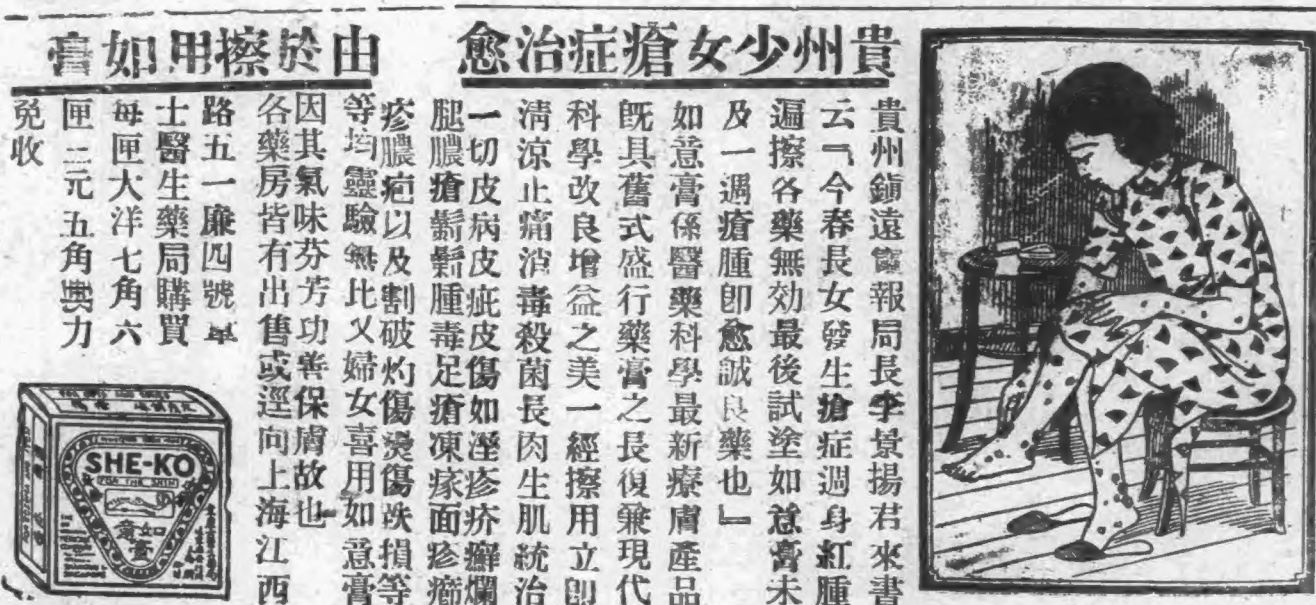 貴州少女瘡症治愈
由於擦用如膏
貴州鎭遠電報局長李景揚君來書
云『今春長女發生瘡症週身紅腫
遍擦各藥無効最後試塗如意膏未
及一週瘡腫卽愈誠良藥也』
如意膏係醫藥科學最新療膚產品
旣具舊式盛行藥膏之長復兼現代
科學改良增益之美一經擦用立卽
清涼止痛消毒殺菌長肉生肌統治
一切皮病皮疵皮傷如溼疹疥癬爛
腿膿瘡鬎鬁腫毒足瘡凍瘃面疹癤
疹膿疱以及割破灼傷燙傷跌損等
等均靈驗無比又婦女喜用如意膏
因其氣味芬芳功善保膚故也
各藥房皆有出售或逕向上海江西
路五一廉四號韋
士醫生藥局購買
每匣大洋七角六
匣三元五角郵力
免收
SHE-KO
FOR THE SKIN
如意膏
SINGAPORE